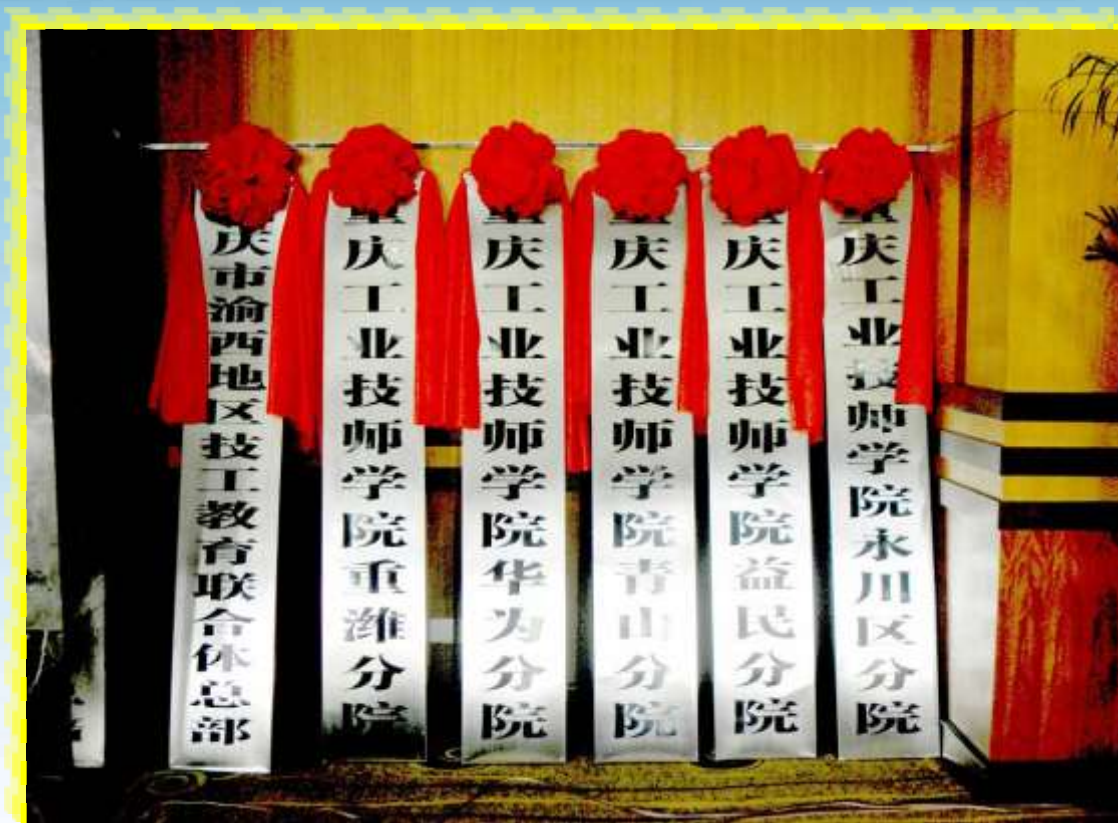 庆市渝西地区技工教育联合体总部
重庆工业技师学院重潍分院
重庆工业技师学院华为分院
重庆工业技师学院青山分院
重庆工业技师学院益民分院
重庆工业技师学院永川区分院